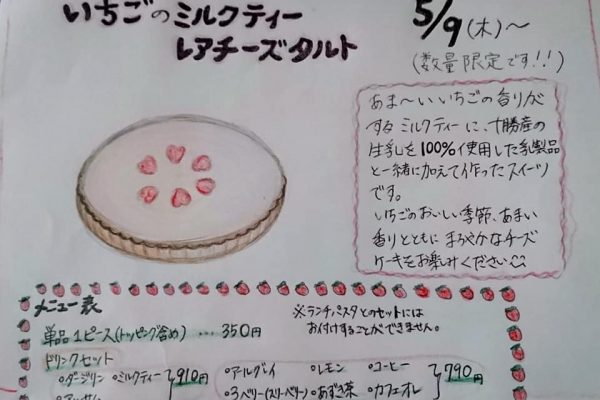 いちごのミルクティー
レアチーズタルト
5/9(木)〜
(数量限定です!!)
あま〜いいちごの香りが
するミルクティーに、十勝産の
生乳を100%使用した乳製品
と一緒に加えて作ったスイーツ
です。
いちごのおいしい季節、あまい
香りとともにまろやかなチーズ
ケーキをお楽しみください
メニュー表
※ランチパスタとのセットには
お付けすることができません。
単品1ピース(トッピング含め)…350円
ドリンクセット
・ダージリン ・ミルクティー 910円
・アッサム
・アールグレイ ・レモン ・コーヒー 790円
・3ベリー(スリーベリー) ・あずき茶 ・カフェオレ